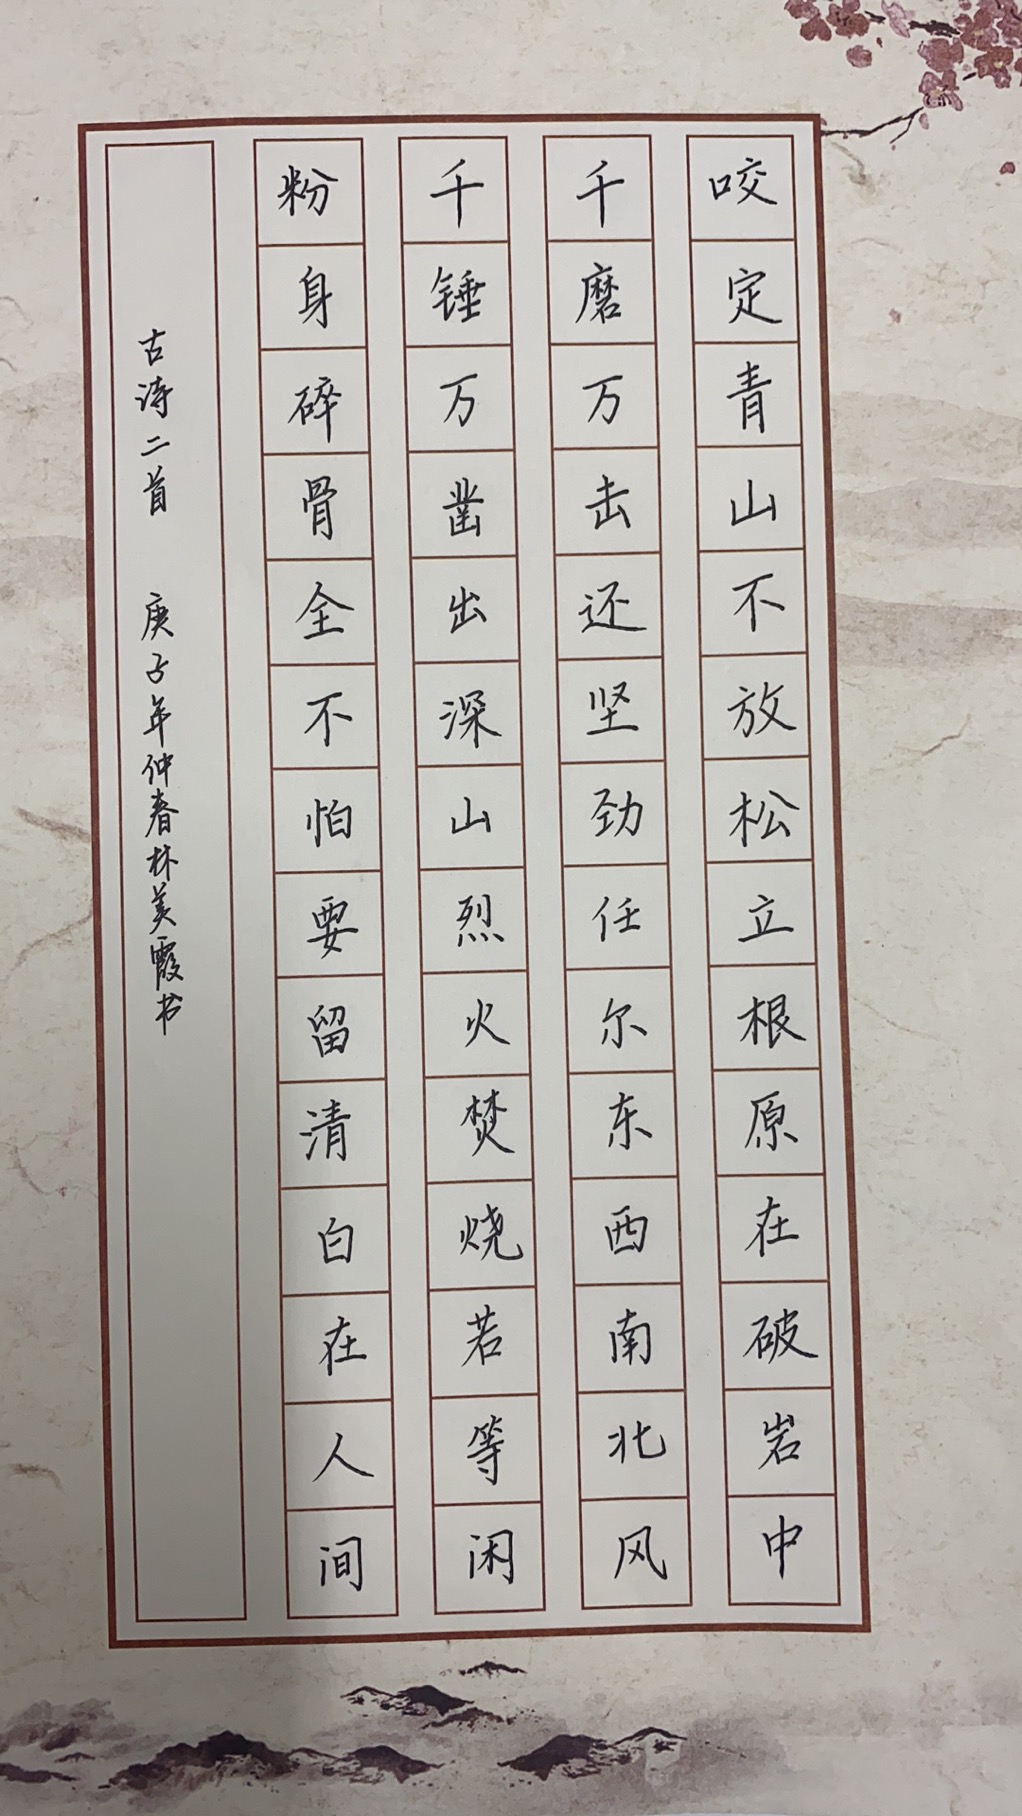 咬定青山不放松立根原在破岩中
千磨万击还坚劲任尔东西南北风
千锤万凿出深山烈火焚烧若等闲
粉身碎骨全不怕要留清白在人间
古诗二首 庚子年仲春林美霞书